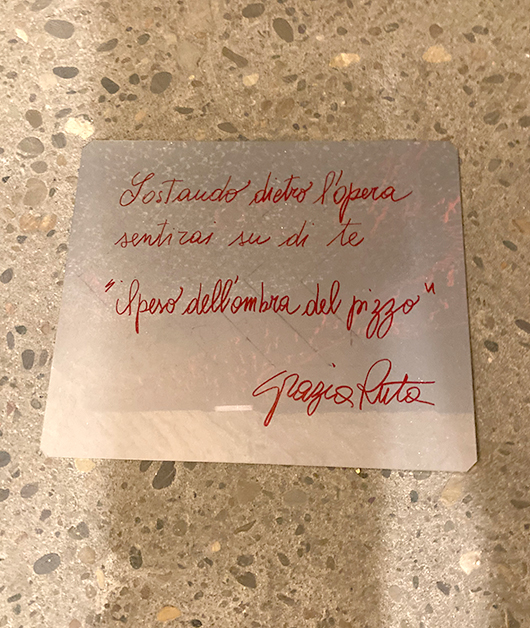 Sostando dietro l'opera
sentirai su di te
"il peso dell'ombra del pizzo"
Grazia Ruta